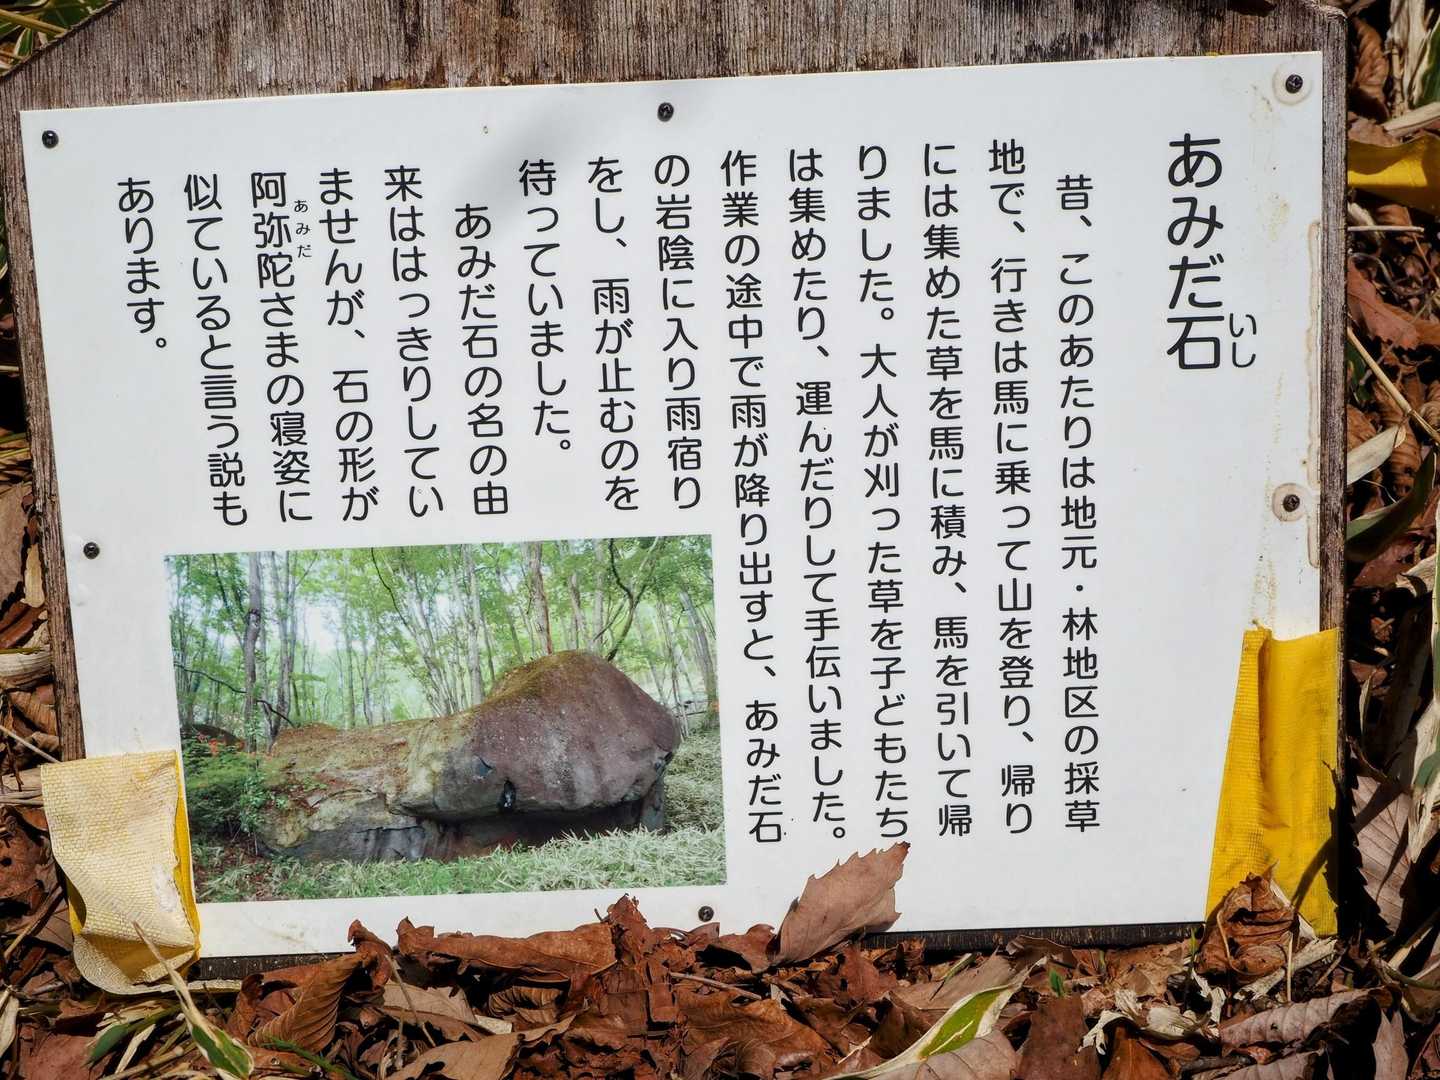 あみだ石
いし
昔、このあたりは地元・林地区の採草
地で、行きは馬に乗って山を登り、帰り
には集めた草を馬に積み、馬を引いて帰
りました。大人が刈った草を子どもたち
は集めたり、運んだりして手伝いました。
作業の途中で雨が降り出すと、あみだ石
の岩陰に入り雨宿り
をし、雨が止むのを
待っていました。
あみだ石の名の由
来ははっきりしてい
ませんが、石の形が
あみだ
阿弥陀さまの寝姿に
似ていると言う説も
あります。